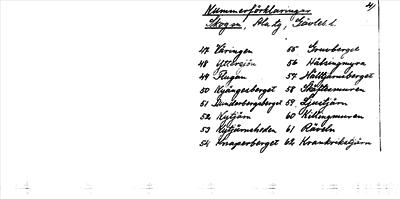 Nummerförklaringar 4)
Skogen, Platz, Gävleb. l.
47 Ekringen
48 Yttersjön
49 Flugan
50 Kyångesberget
51 Lunderbergsberget
52 Kytjärn
53 Kytjärnsheden
54 Knaperberget
55 Grusberget
56 Hälsingmyra
57 Nålltjärnsberget
58 Skåftesmuren
59 Ljustjärn
60 Killingmuren
61 Råveln
62 Krankrikstjärn